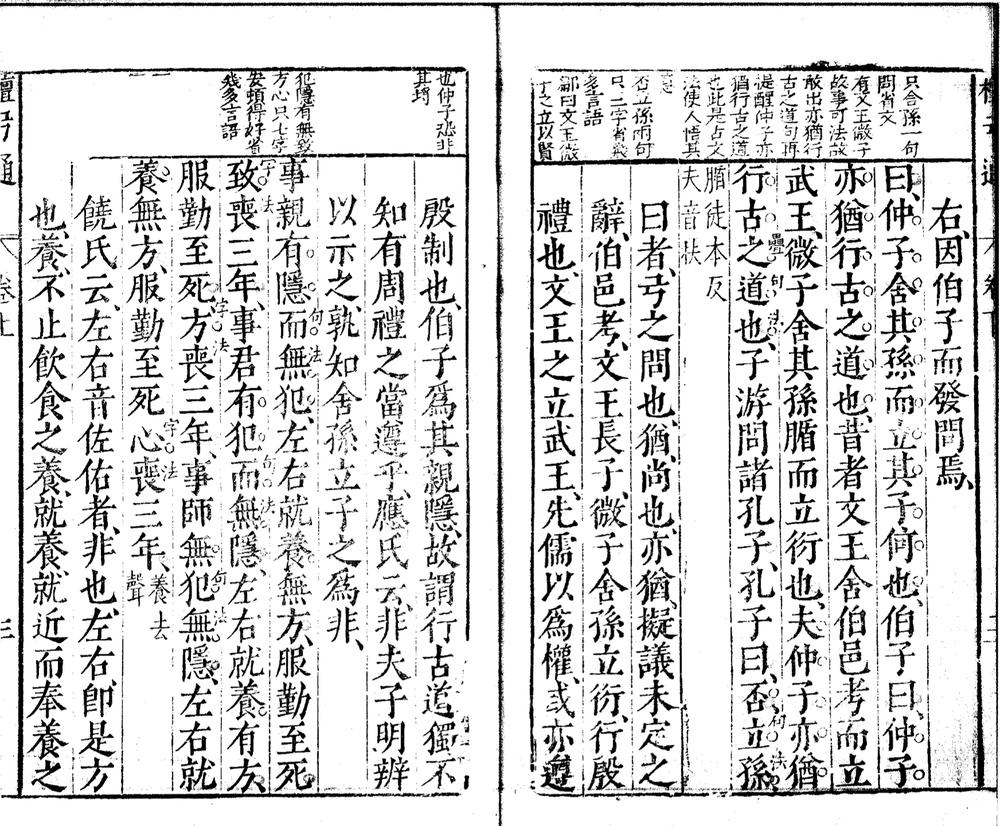 右因伯子而發問焉
曰仲子舍其孫而立其子何也伯子曰仲子
亦猶行古之道也昔者文王舍伯邑考而立
武王微子舍其孫腯而立衍也夫仲子亦猶
行古之道也子游問諸孔子孔子曰否立孫
腯徒本反
夫音扶
曰者弓之問也猶尚也亦猶擬議未定之
辭伯邑考文王長子微子舍孫立衍行殷
禮也文王之立武王先儒以爲權或亦遵
殷制也伯子爲其親隱故謂行古道獨不
知有周禮之當遵乎應氏云非夫子明辨
以示之孰知舍孫立子之爲非
事親有隱而無犯左右就養無方服勤至死
致喪三年事君有犯而無隱左右就養有方
服勤至死方喪三年事師無犯無隱左右就
養無方服勤至死心喪三年養去
聲
饒氏云左右音佐佑者非也左右卽是方
也養不止飲食之養就養就近而奉養之
只舍孫一句
問省文
有文王微子
故事可法故
敢出亦猶行
古之道句再
提醒仲子亦
猶行古之道
也此是占文
法使人悟其
否立孫兩句
只二字省幾
多言語
鄒曰文王微
子之立以賢
也仲子恐非
其
犯隱有無致
方心只七字
安頓得好省
幾多言語
句法
字法
疊句法
檀弓通
卷上
三